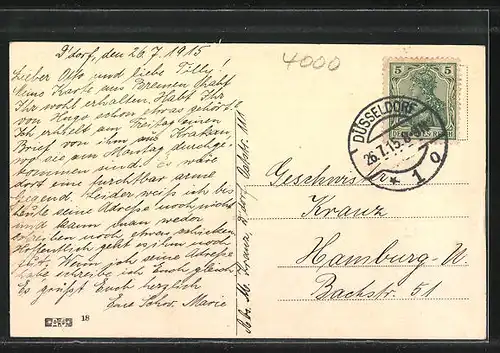 D'dorf, den 26.7.1915
Lieber Otto und liebe Tilly!
Meine Karte aus Bremen habt
Ihr wohl erhalten. Habt Ihr
von Hugo schon etwas gehört?
Ich erhielt am Freitag einen
Brief von ihm aus Krakau,
wo sie am Montag durchge-
kommen sind. Es wäre
dort eine furchtbar arme
Gegend. Leider weiß ich bis
heute seine Adresse noch nicht
und kann Ihm weder
schreiben noch etwas schicken
Hoffentlich geht es ihm noch
gut. Wenn ich seine Adresse
habe schreibe ich Euch gleich.
Es grüßt Euch herzlich
Eure Schw. Marie
18
Abs. M. Kranz, D'dorf, 111
4000
5 5
DEUTSCHES REICH
DÜSSELDORF
26.7.15.
* 1 o
Geschwister
Kranz
Hamburg-U.
Bachstr. 51